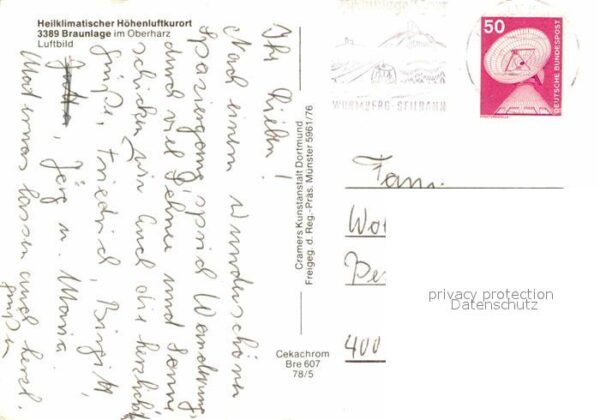 Heilklimatischer Höhenluftkurort
3389 Braunlage im Oberharz
Luftbild
Ihr Lieben!
Nach einem wunderschönen
Spaziergang, sprich Wanderung,
durch viel Schnee und Sonne
schicken wir Euch die herzlich
Grüße, Friedrich, Birgitt,
Jörg u. Maria
Und lassen Euch herzl.
grüßen
Cramers Kunstanstalt Dortmund
Freigeg. d. Reg.-Präs. Münster 5961/76
Cekachrom
Bre 607
78/5
WURMBERG-SEILBAHN
50
DEUTSCHE BUNDESPOST
Fam.
Wo
400
privacy protection
Datenschutz